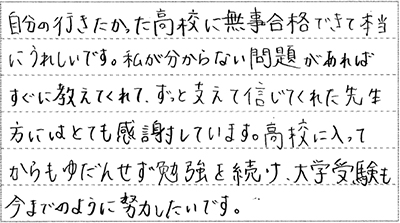 自分の行きたかった高校に無事合格できて本当
にうれしいです。私が分からない問題があれば
すぐに教えてくれて、ずっと支えて信じてくれた先生
方にはとても感謝しています。高校に入って
からもゆだんせず勉強を続け、大学受験も
今までのように努力したいです。